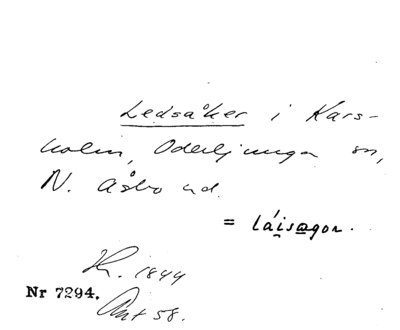 Ledsåker i Kars-
holm, Oderljunga sn,
N. Åsbo hd.
= láisagor.
1844
Nr 7294.
58.